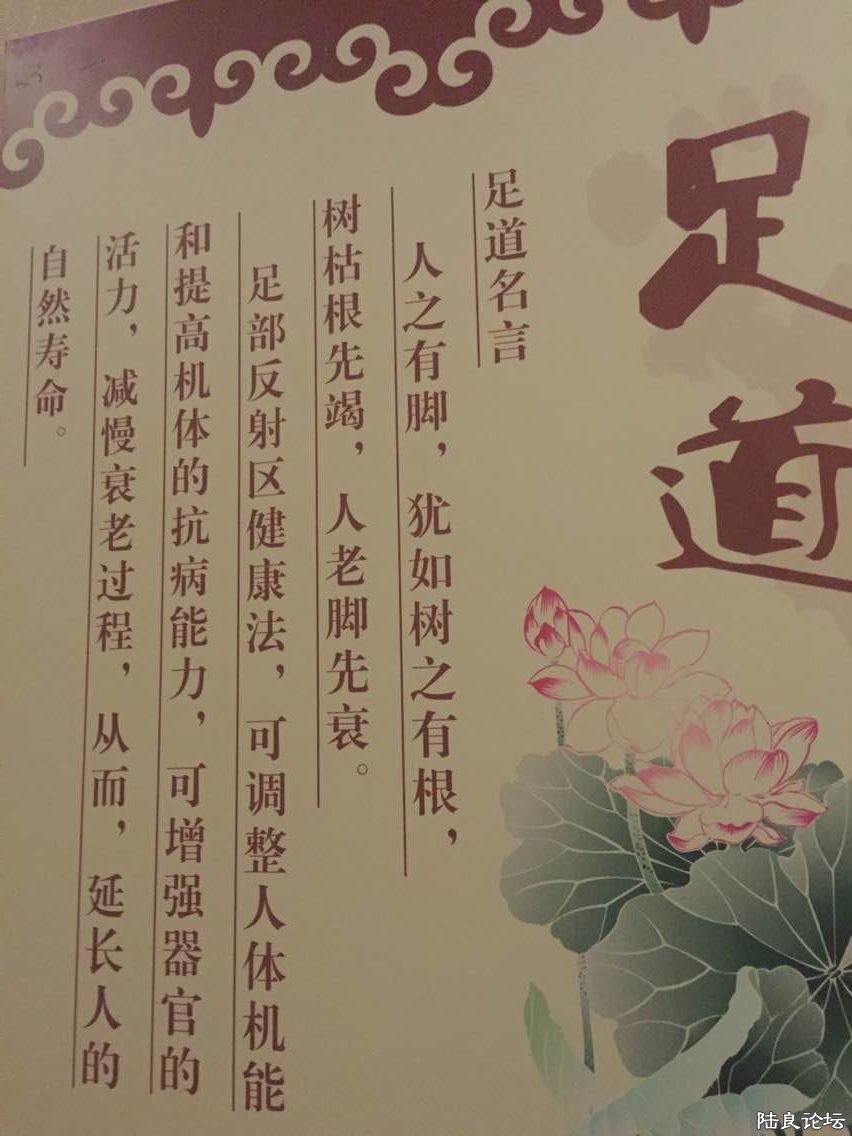 足道
足道名言
人之有脚，犹如树之有根，
树枯根先竭，人老脚先衰。
足部反射区健康法，可调整人体机能
和提高机体的抗病能力，可增强器官的
活力，减慢衰老过程，从而，延长人的
自然寿命。
陆良论坛